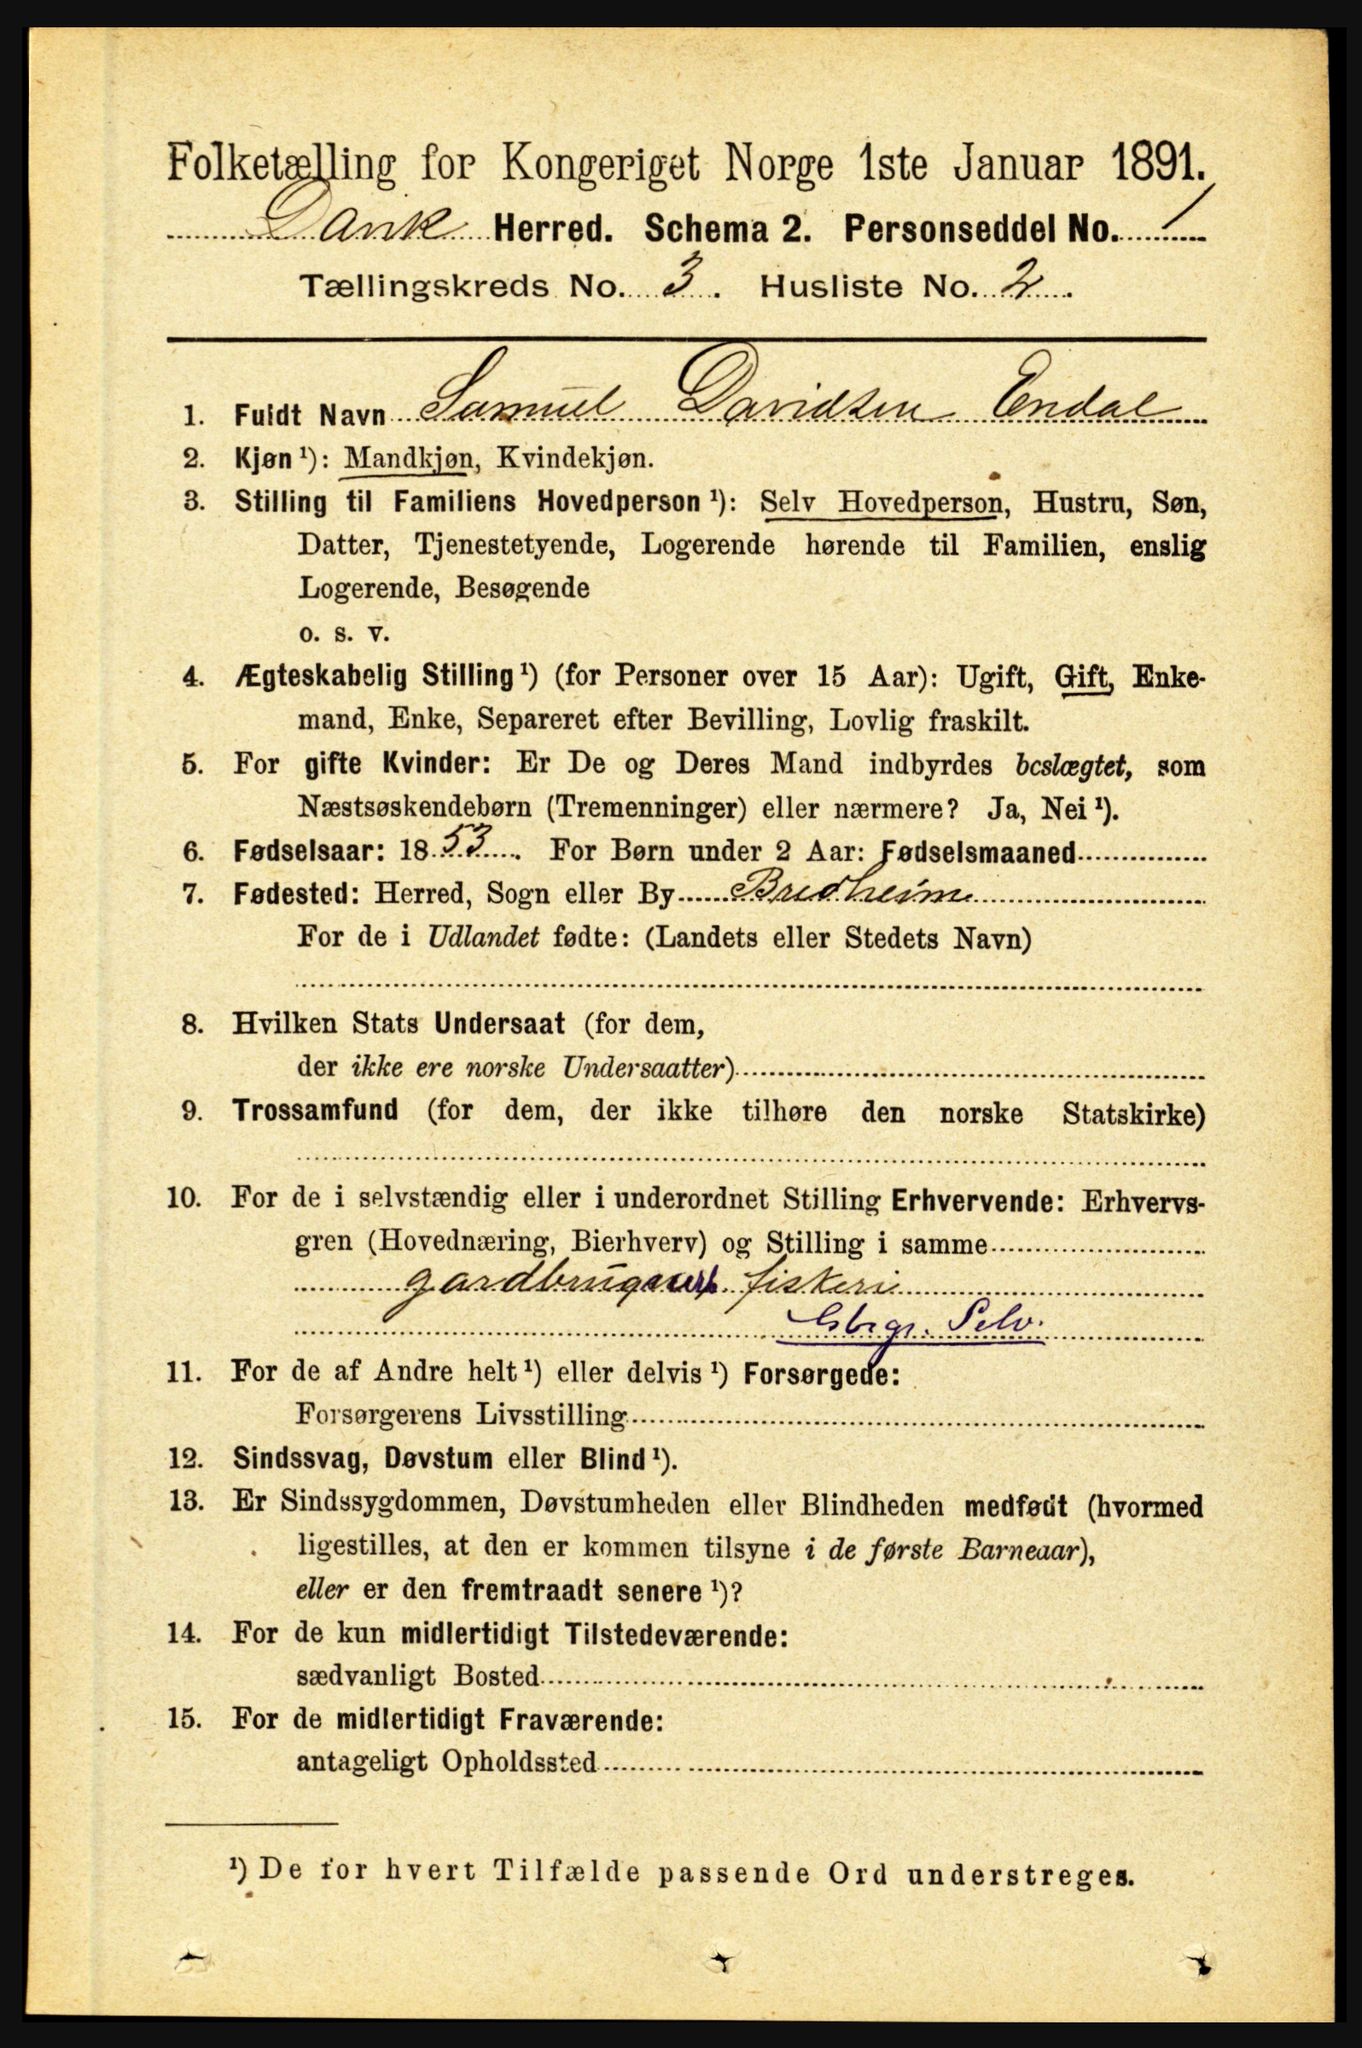 Folketælling for Kongeriget Norge 1ste Januar 1891.
Davik Herred. Schema 2. Personseddel No. 1
Tællingskreds No. 3. Husliste No. 2.
1. Fuldt Navn Samuel Davidsen Endal
2. Kjøn ¹): Mandkjøn, Kvindekjøn.
3. Stilling til Familiens Hovedperson ¹): Selv Hovedperson, Hustru, Søn,
Datter, Tjenestetyende, Logerende hørende til Familien, enslig
Logerende, Besøgende
o. s. v.
4. Ægteskabelig Stilling ¹) (for Personer over 15 Aar): Ugift, Gift, Enke-
mand, Enke, Separeret efter Bevilling, Lovlig fraskilt.
5. For gifte Kvinder: Er De og Deres Mand indbyrdes beslægtet, som
Næstsøskendebørn (Tremenninger) eller nærmere? Ja, Nei ¹).
6. Fødselsaar: 1853. For Børn under 2 Aar: Fødselsmaaned
7. Fødested: Herred, Sogn eller By Bredheim
For de i Udlandet fødte: (Landets eller Stedets Navn)
8. Hvilken Stats Undersaat (for dem,
der ikke ere norske Undersaatter)
9. Trossamfund (for dem, der ikke tilhøre den norske Statskirke)
10. For de i selvstændig eller i underordnet Stilling Erhvervende: Erhvervs-
gren (Hovednæring, Bierhverv) og Stilling i samme
fiskeri
Gbrgr. Selv.
11. For de af Andre helt ¹) eller delvis ¹) Forsørgede:
Forsørgerens Livsstilling
12. Sindssvag, Døvstum eller Blind ¹).
13. Er Sindssygdommen, Døvstumheden eller Blindheden medfødt (hvormed
ligestilles, at den er kommen tilsyne i de første Barneaar),
eller er den fremtraadt senere ¹)?
14. For de kun midlertidigt Tilstedeværende:
sædvanligt Bosted
15. For de midlertidigt Fraværende:
antageligt Opholdssted
¹) De for hvert Tilfælde passende Ord understreges.